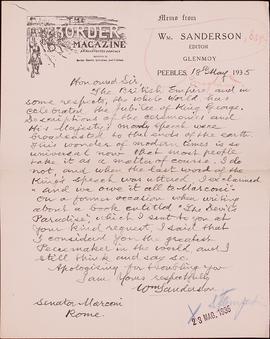 THE
BORDER
MAGAZINE
Memo from
WM. SANDERSON
EDITOR
GLENMOY
PEEBLES, 18th May 1935
Honoured Sir,
The British Empire, and in
some respects, the whole World has
celebrated the Jubilee of King George.
Descriptions of the ceremonies and
His Majesty's speech were
broadcasted to the ends of the earth.
This wonder of modern times is so
universal now that most people
take it as a matter of course. I do
not, and when the last word of the
King's speech was uttered I exclaimed
"and we owe it all to Marconi"
On a former occasion when writing
about a book entitled "The Devil's
Paradise", which I sent to you at
your kind request, I said that
I considered you the greatest
Peacemaker in the world, and I
still think and say so.
Apologising for troubling you
I am Yours respectfully
Wm Sanderson
Senator Marconi
Rome.